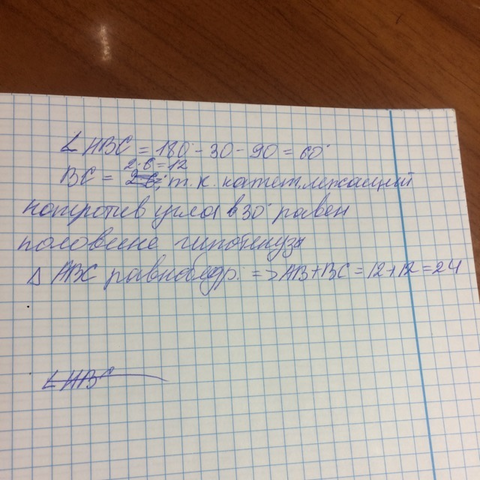 ∠HBC = 180° - 30 - 90 = 60°
2·6=12
BC = 2·6; т.к. катет лежащий
напротив угла в 30° равен
половине гипотенузы
△ ABC равнобедр. => AB+BC = 12+12 = 24
∠HBC